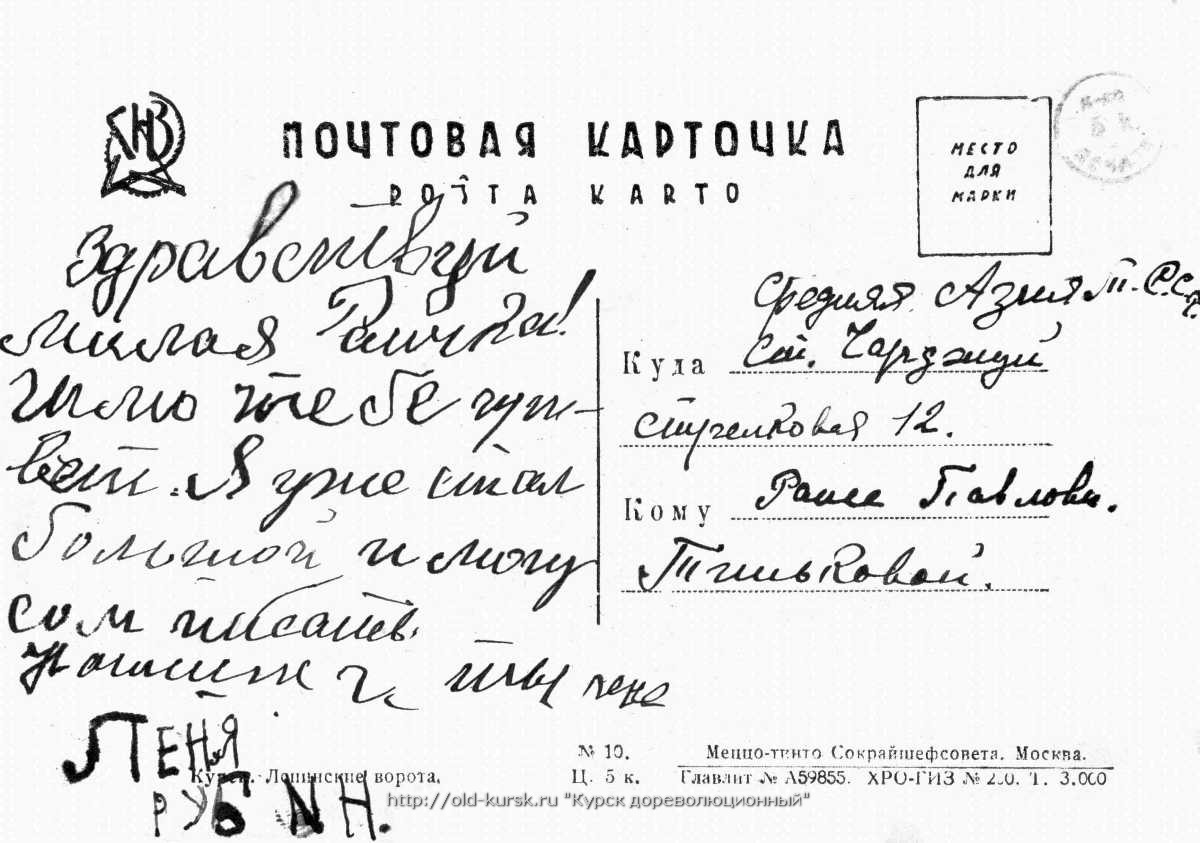 ГИЗ
ПОЧТОВАЯ КАРТОЧКА
POŜTA KARTO
МЕСТО
ДЛЯ
МАРКИ
Здравствуй
милая Раичка!
Шлю тебе при-
вет. Я уже стал
большой и могу
сом писать.
Напиши и ты мне
ЛЕНЯ
РУБИН.
Средняя Азия Т.С.С.Р.
Куда ст. Чарджуй
Стрелковая 12.
Кому Раисе Павловн.
Тиньковой.
Курск. Ленинские ворота.
№ 10.
Ц. 5 к.
Меццо-тинто Сокрайшефсовета. Москва.
Главлит № А59855. ХРО-ГИЗ № 2.0. Т. 3.000
http://old-kursk.ru "Курск дореволюционный"